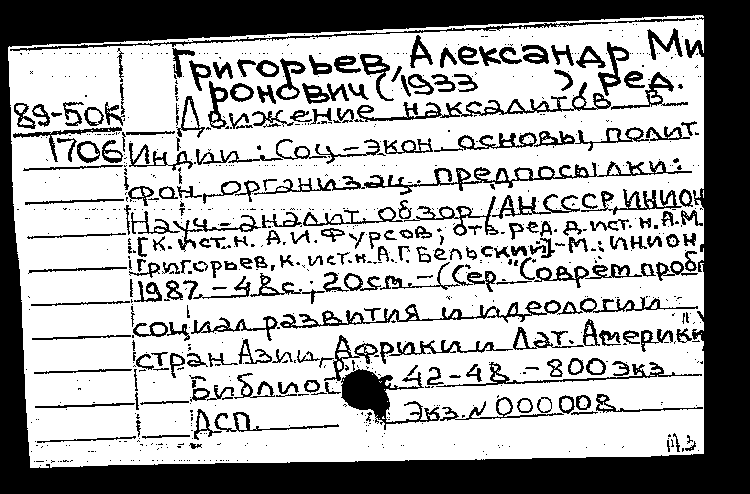 Григорьев, Александр Ми
ронович (1933 ), ред.
89-50К Движение наксалитов в
1706 Индии: Соц-экон. основы, полит.
фон, организац. предпосылки:
Науч.-аналит. обзор /АН СССР, ИНИОН
[к. ист. н. А.И. Фурсов; отв. ред. д. ист. н. А.М.
Григорьев, к. ист. н. А.Г. Бельский]-М.: ИНИОН,
1987.-48с.; 20см.-(Сер. "Соврем. проб
социал развития и идеологии
стран Азии, Африки и Лат. Америки")
Библиогр.: с. 42-48.-800 экз.
ДСП. Экз. N 000008.